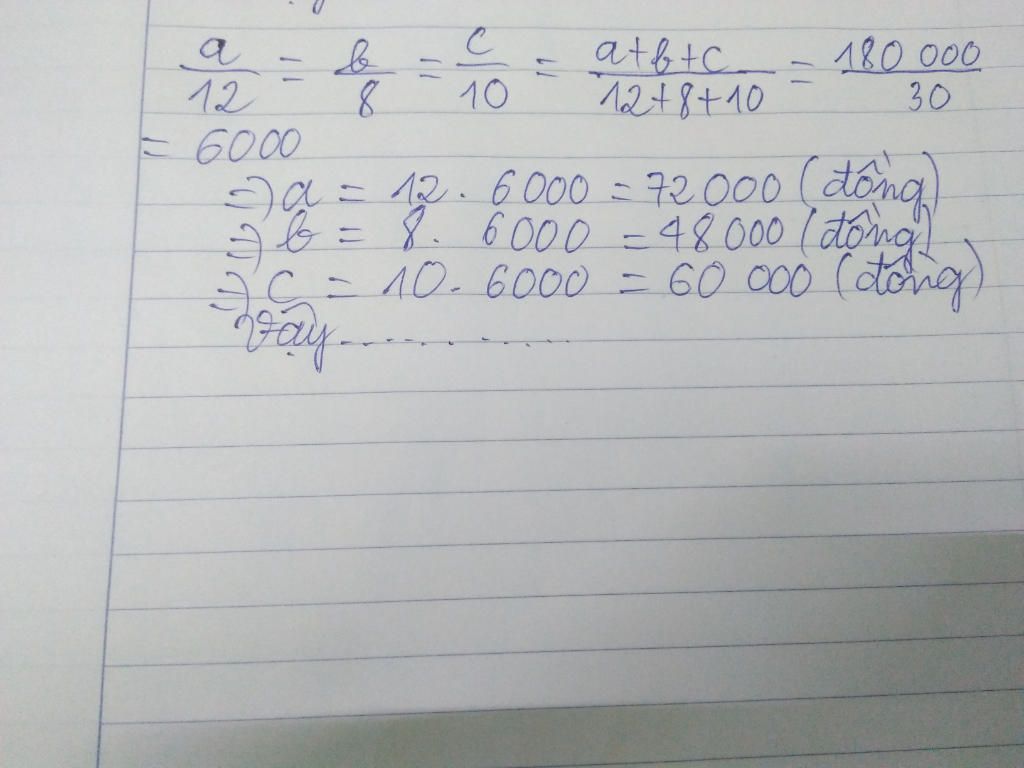 a/12 = b/8 = c/10 = a+b+c/12+8+10 = 180 000/30
= 6000
=> a = 12 . 6000 = 72000 (đồng)
=> b = 8 . 6000 = 48000 (đồng)
=> c = 10 . 6000 = 60 000 (đồng)
Vậy.............